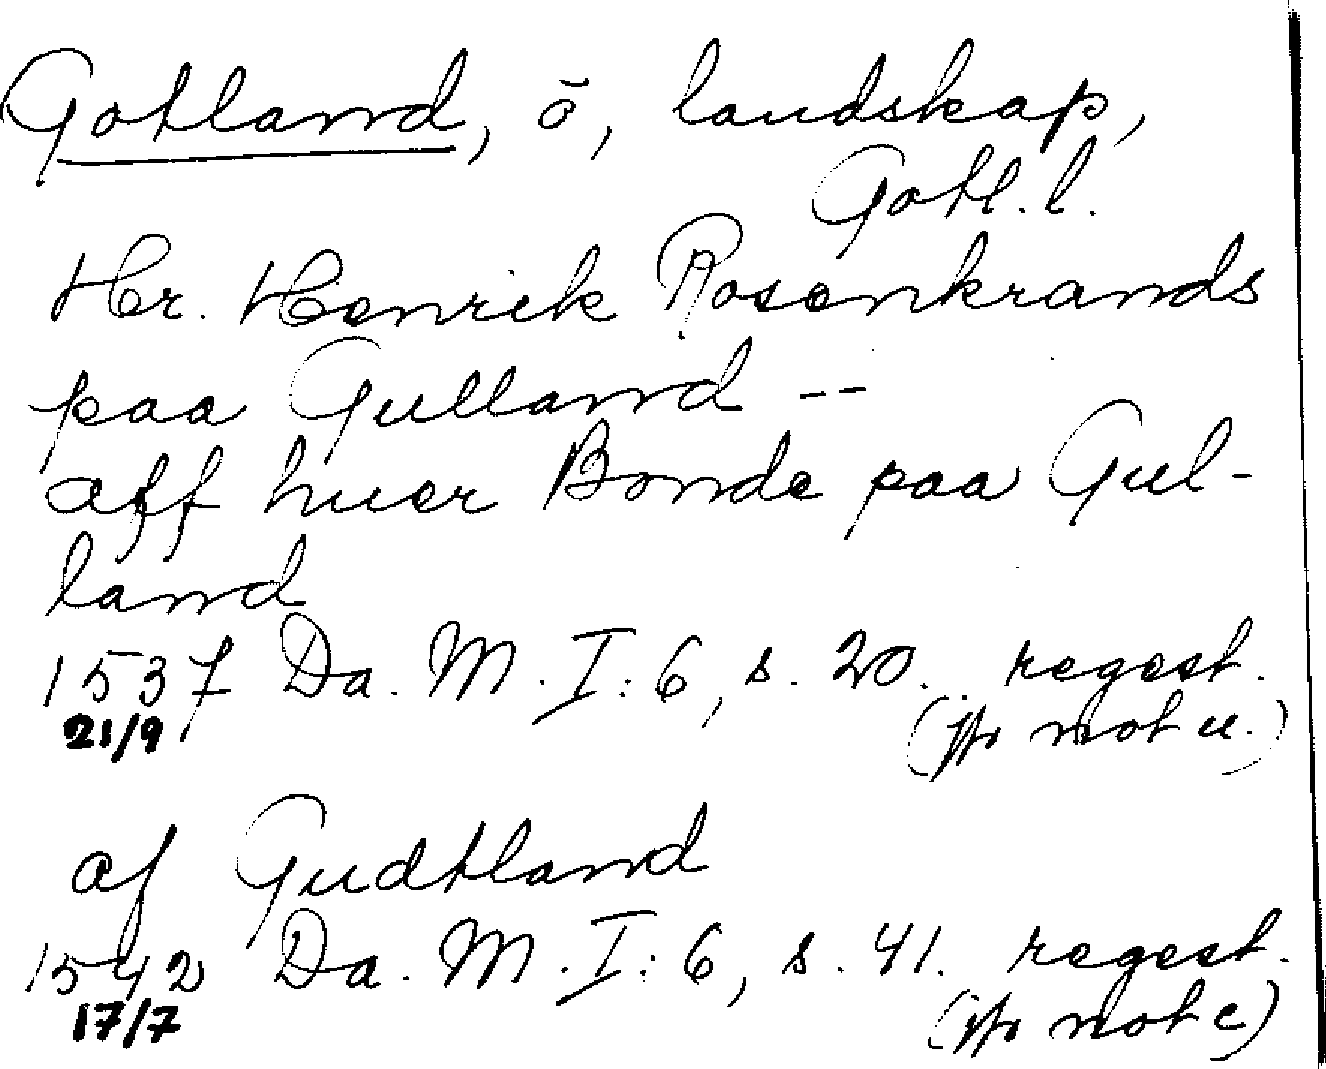 Gotland, ö, landskap,
Gotl. l.
Hr. Henrik Rosenkrands
paa Gulland --
aff huer Bonde paa Gul-
land
1537 Da. M. I: 6, s. 20. regest.
21/9 (jfr not u.)
af Gudtland
1542 Da. M. I: 6, s. 41. regest.
17/7 (jfr not c)